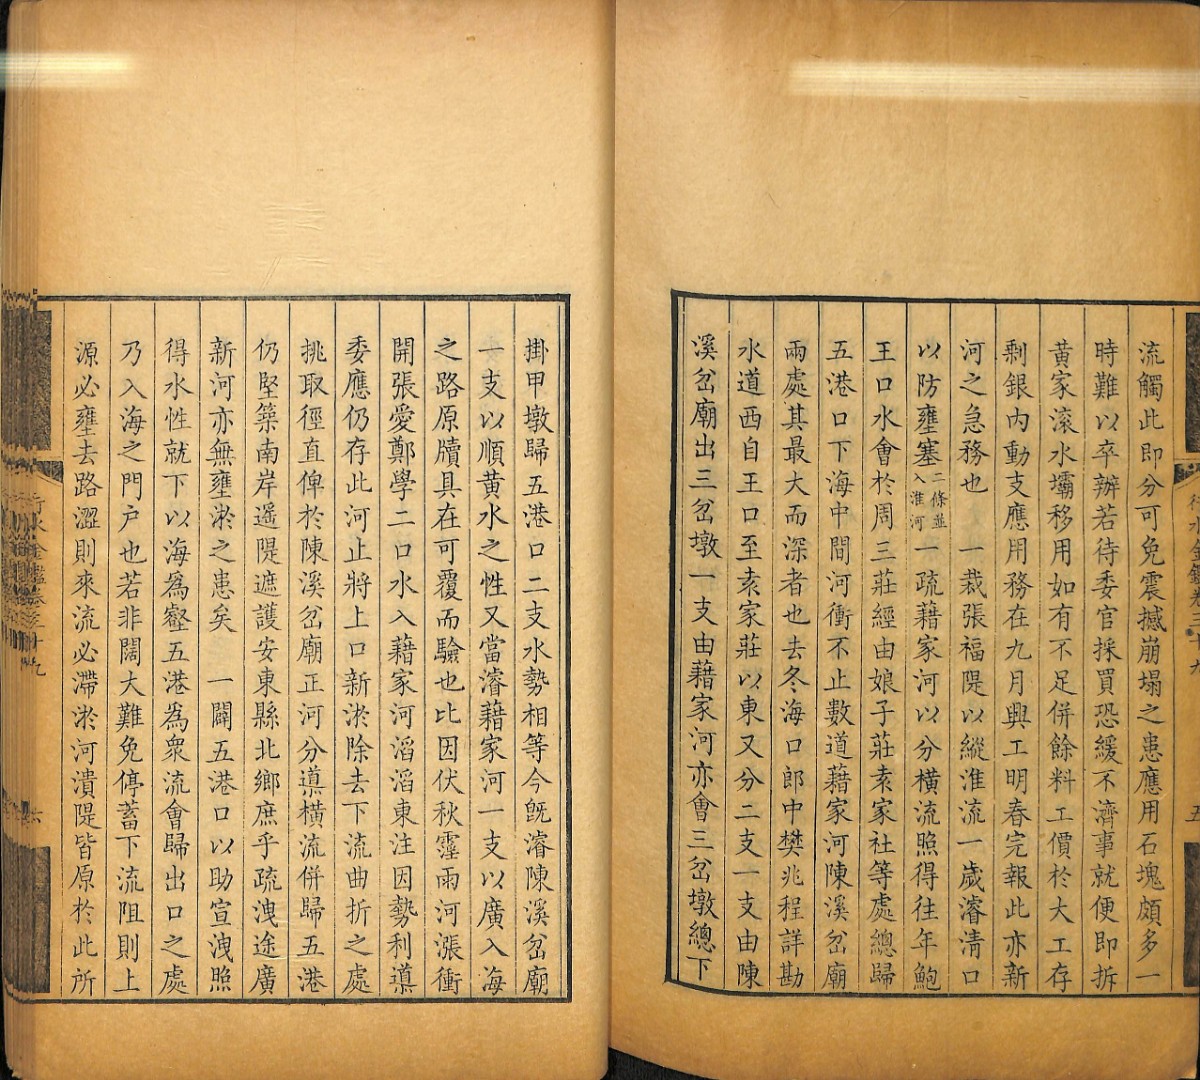 流觸此即分可免震撼崩塌之患應用石塊頗多一
時難以卒辦若待委官採買恐緩不濟事就便即拆
黃家滚水壩移用如有不足併餘料工價於大工存
剩銀内動支應用務在九月興工明春完報此亦新
河之急務也　一裁張福隄以縱淮流一歲濬清口
以防壅塞二條並入淮河一疏藉家河以分橫流照得往年鮑
王口水會於周三莊經由娘子莊袁家社等處總歸
五港口下海中間河衝不止數道藉家河陳溪岔廟
兩處其最大而深者也去冬海口郎中樊兆程詳勘
水道西自王口至袁家莊以東又分二支一支由陳
溪岔廟出三岔墩一支由藉家河亦會三岔墩總下
掛甲墩歸五港口二支水勢相等今旣濬陳溪岔廟
一支以順黄水之性又當濬藉家河一支以廣入海
之路原牘具在可覆而驗也比因伏秋霪雨河漲衝
開張愛鄭學二口水入藉家河滔滔東注因勢利導
委應仍存此河止將上口新淤除去下流曲折之處
挑取徑直俾於陳溪岔廟正河分導橫流併歸五港
仍堅築南岸遥隄遮護安東縣北鄉庶乎疏洩途廣
新河亦無壅淤之患矣　一闢五港口以助宣洩照
得水性就下以海爲壑五港爲衆流會歸出口之處
乃入海之門户也若非闊大難免停蓄下流阻則上
源必壅去路澀則來流必滯淤河潰隄皆原於此所
行水金鑑卷三十九